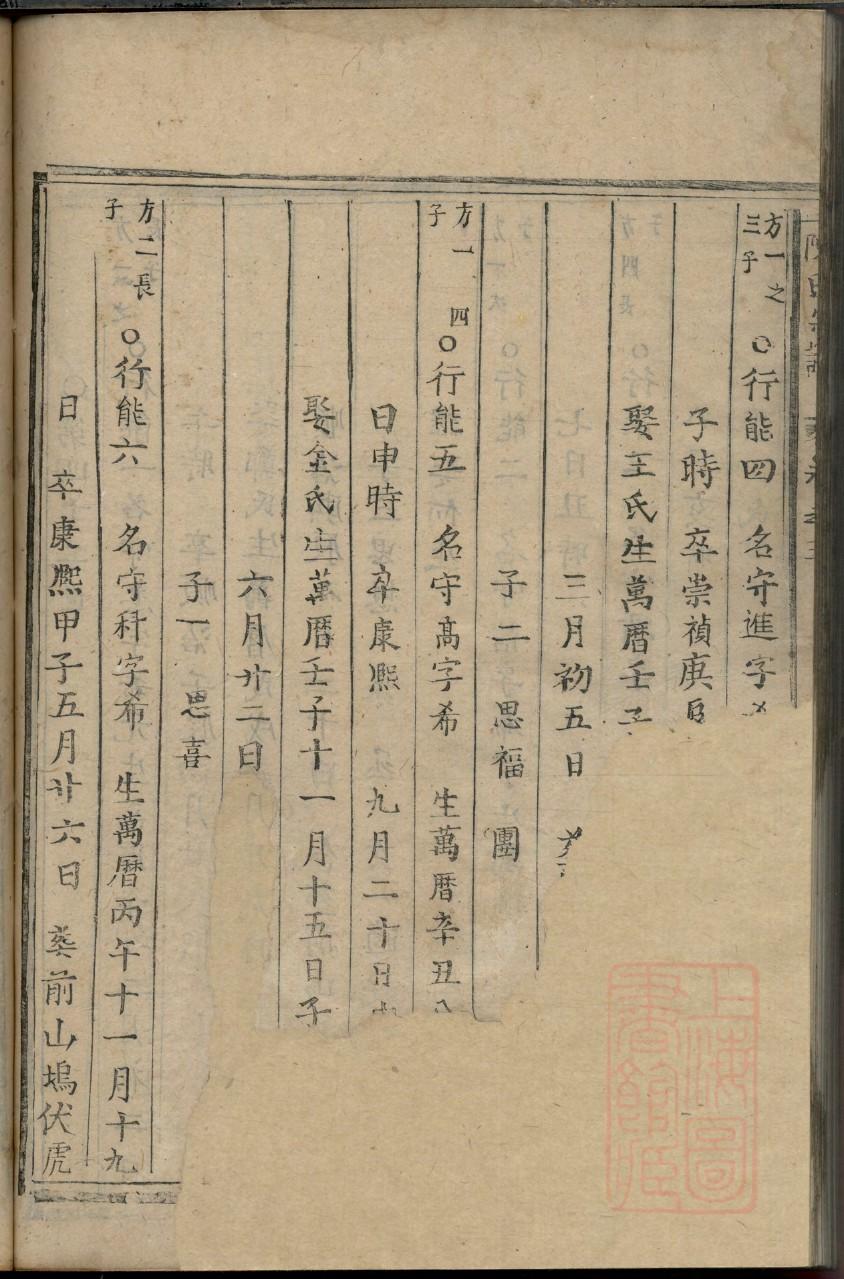 陳氏宗譜
方一之三子 〇行能四 名守進字
子時 卒崇禎庚辰
娶王氏生萬曆壬子
三月初五日
子二 思福 團
方一四子 〇行能五 名守高字希 生萬曆辛丑
日申時 卒康熙 九月二十日
娶金氏生萬曆壬子十一月十五日子
六月廿二日
子一 思喜
方二長子 〇行能六 名守科字希 生萬曆丙午十一月十九
日 卒康熙甲子五月廿六日 葬前山塢伏虎
上海圖書館藏